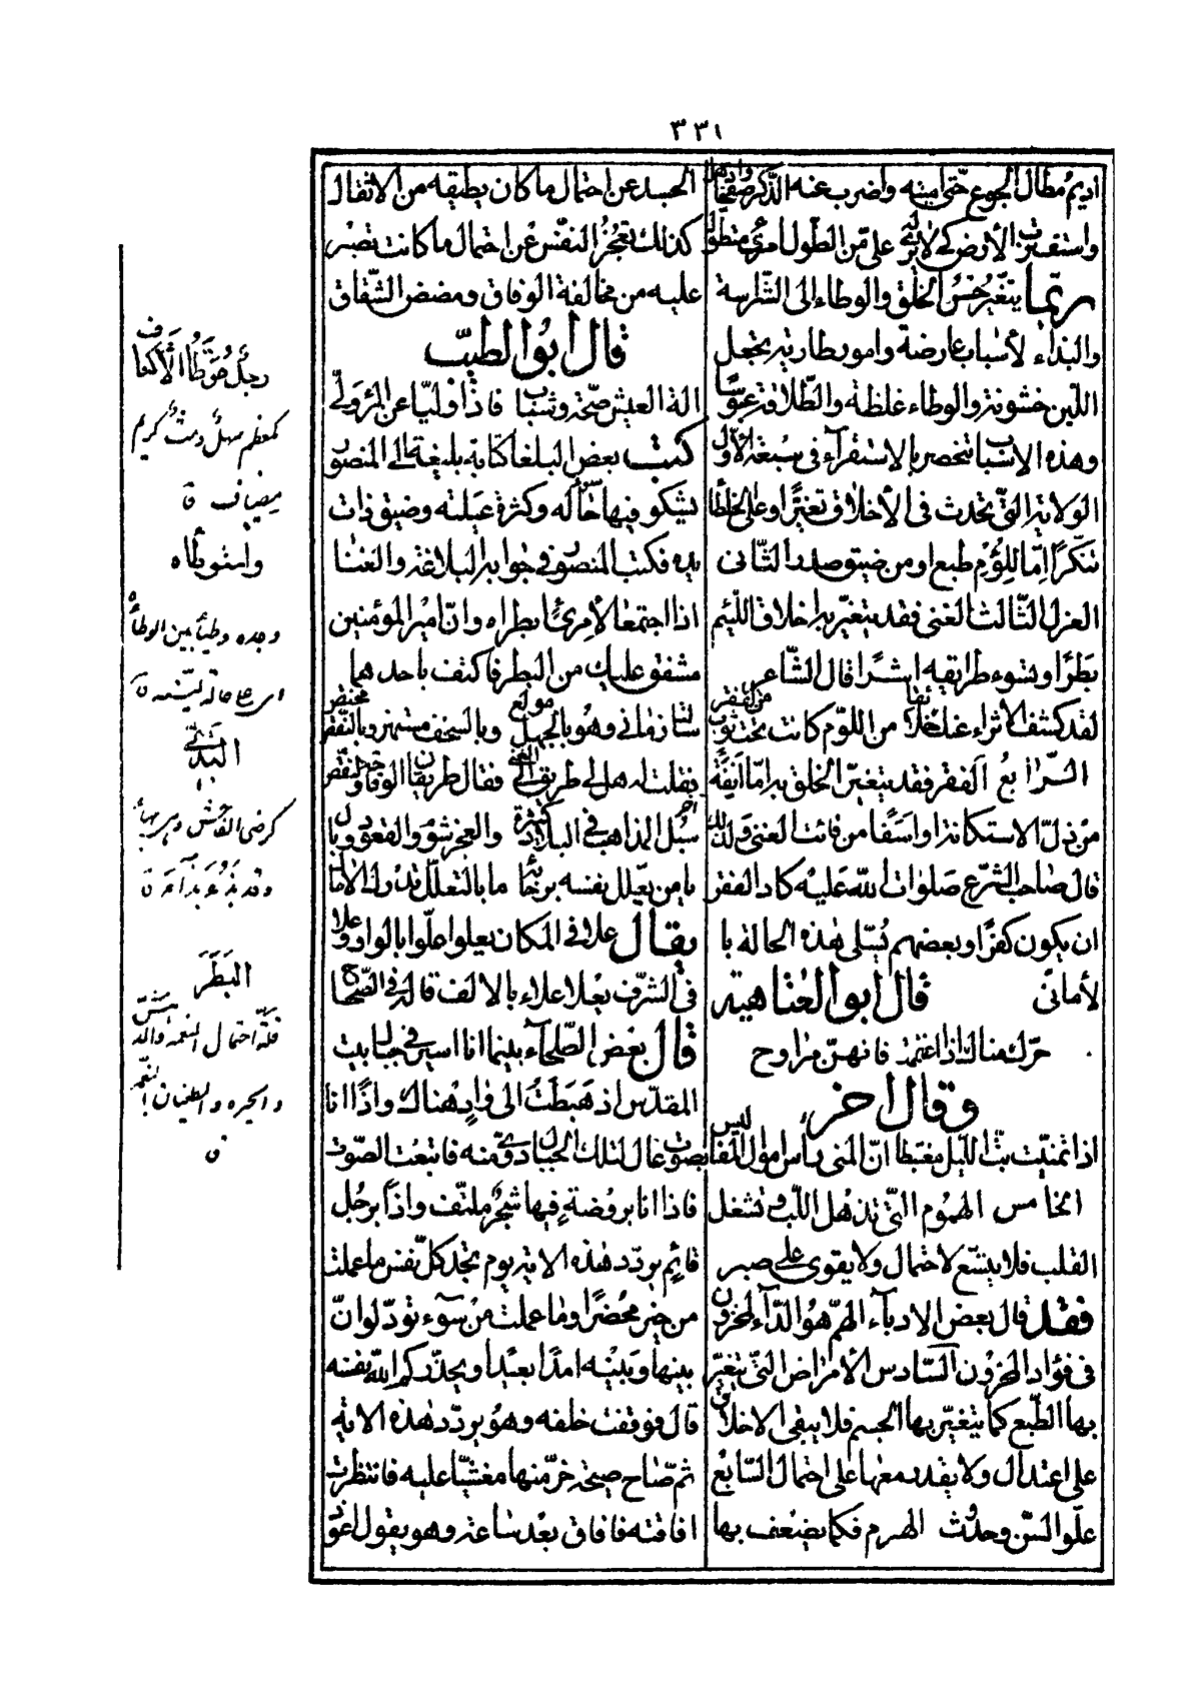 ٣٣١
اديم مطال الجوع حتى اميته واضرب عنه الذكر صفحا واذهل
واستف ترب الأرض كي لا يرى له على من الطول امرئ متطول
ربما يتغير حسن الخلق والوطاء الى الشراسة
والبذاء لأسباب عارضة وامور طارية تجعل
اللين خشونة والوطاء غلظة والطلاقة عبوسًا
وهذه الاسباب تنحصر بالاستقرآء فى سبعة الأول
الولاية التى تحدث فى الأخلاق تغيرًا وعلى الخلطا
تنكرًا امّا للؤم طبع او من ضيق صدر الثانى
العزل الثالث الغنى فقد يتغير به اخلاق اللئيم
بطرًا وتسوء طرايقه اشرًا قال الشاعر
لقد كشف الاثراء عنك خلائقا من اللؤم كانت تحت ثوب من الفقر
الرابع الفقر فقد يتغير الخلق به امّا انفة
من ذل الاستكانة او اسفًا من فائت الغنى ولذلك
قال صاحب الشرع صلوات الله عليه كاد الفقر
ان يكون كفرًا وبعضهم يسلى هذه الحالة با
لأمانى قال ابو العتاهية
حرك مناك اذا اغتممت فانهن مراوح
وقال اخر
اذا تمنيت بت الليل مغتبطا ان المنى راس اموال المفاليس
الخامس الهموم التى تذهل اللب وتشغل
القلب فلا يتسع لاحتمال ولا يقوى على صبر
فقد قال بعض الادبآء الهم هو الدآء المخزون
فى فؤاد المحزون السادس الأمراض التى يتغير
بها الطبع كما يتغير بها الجسم فلا يبقى الاخلاق
على اعتدال ولا يقدر معها على احتمال السابع
علو السن وحدوث الهرم فكما يضعف بها
الجسد عن احتمال ما كان يطيقه من الاثقال
كذلك تعجز النفس عن احتمال ما كانت تصبر
عليه من مخالفة الوفاق ومضض الشقاق
قال ابو الطيب
الة العيش صحة وشباب فاذا وليا عن المرء ولى
كتب بعض البلغا كتابة بليغة الى المنصور
يشكو فيها حاله وكثرة عيلته وضيق ذات
يده فكتب المنصور فى جوابه البلاغة والغنا
اذا اجتمعا لأمرئ ابطراه وان امير المؤمنين
مشفق عليك من البطر فاكتف باحدهما
لنا زمانى وهو بالجهل مولع وبالسخف مشتهر وبالنقص مختص
فقلت له هل لى طريق الى الغنى فقال طريقان الوقاحة والنقص
سبل المذاهب فى البلاد كثيرة والعجز شؤم والقعود وبال
يا من يعلل نفسه برجائه ما بالتعلل تدرك الامال
يقال علا فى المكان يعلوا علوا بالواو وعلا
فى الشرف يعلا علاء بالالف قاله فى الصحاح
قال بعض الصلحآء بينما انا اسير فى جبال بيت
المقدس اذ هبطت الى واد هناك واذًا انا
بصوت عال لتلك الجبال دوى منه فاتبعت الصوت
فاذا انا بروضة فيها شجر ملتف واذًا برجل
قائم يردد هذه الاية يوم تجد كل نفس ما عملت
من خير محضرًا وما عملت من سوء تود لو ان
بينها وبينه امدًا بعيدًا ويحذركم الله نفسه
قال فوقفت خلفه وهو يردد هذه الاية
ثم صاح صيحة خر منها مغشيا عليه فانتظرت
افاقته فافاق بعد ساعة وهو يقول اعوذ
رجل موطأ الأكناف
كمعظم سهل دمث كريم
مضياف ق
واستوطأه
وجده وطيأ بين الوطاءة
اى على حالة لينة ق
البذى
البطر
قلة احتمال النعمة والد
والحيرة والطغيان بالنعمة
ق